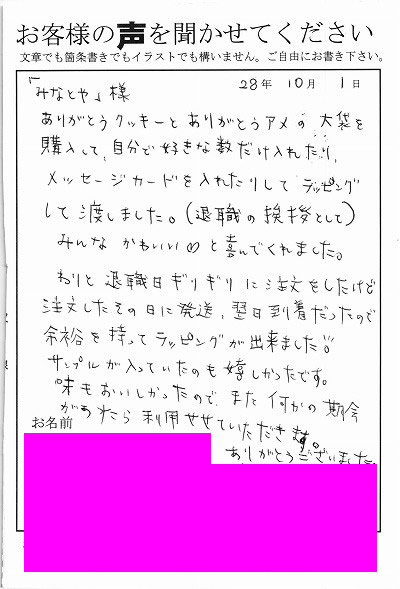 お客様の声を聞かせてください
文章でも箇条書きでもイラストでも構いません。ご自由にお書き下さい。
28年 10月 1日
「みなとや」様
ありがとうクッキーと ありがとうアメの 大袋を
購入して、自分で好きな数だけ入れたり、
メッセージカードを入れたりして ラッピング
して渡しました。(退職の挨拶として)
みんな かわいい♡と喜んでくれました。
わりと 退職日ギリギリに注文をしたけど
注文したその日に発送、翌日到着だったので
余裕を持ってラッピングが出来ました!!
サンプルが入っていたのも嬉しかったです。
味もおいしかったので、また何かの機会
があったら利用させていただきます。
お名前
ありがとうございました